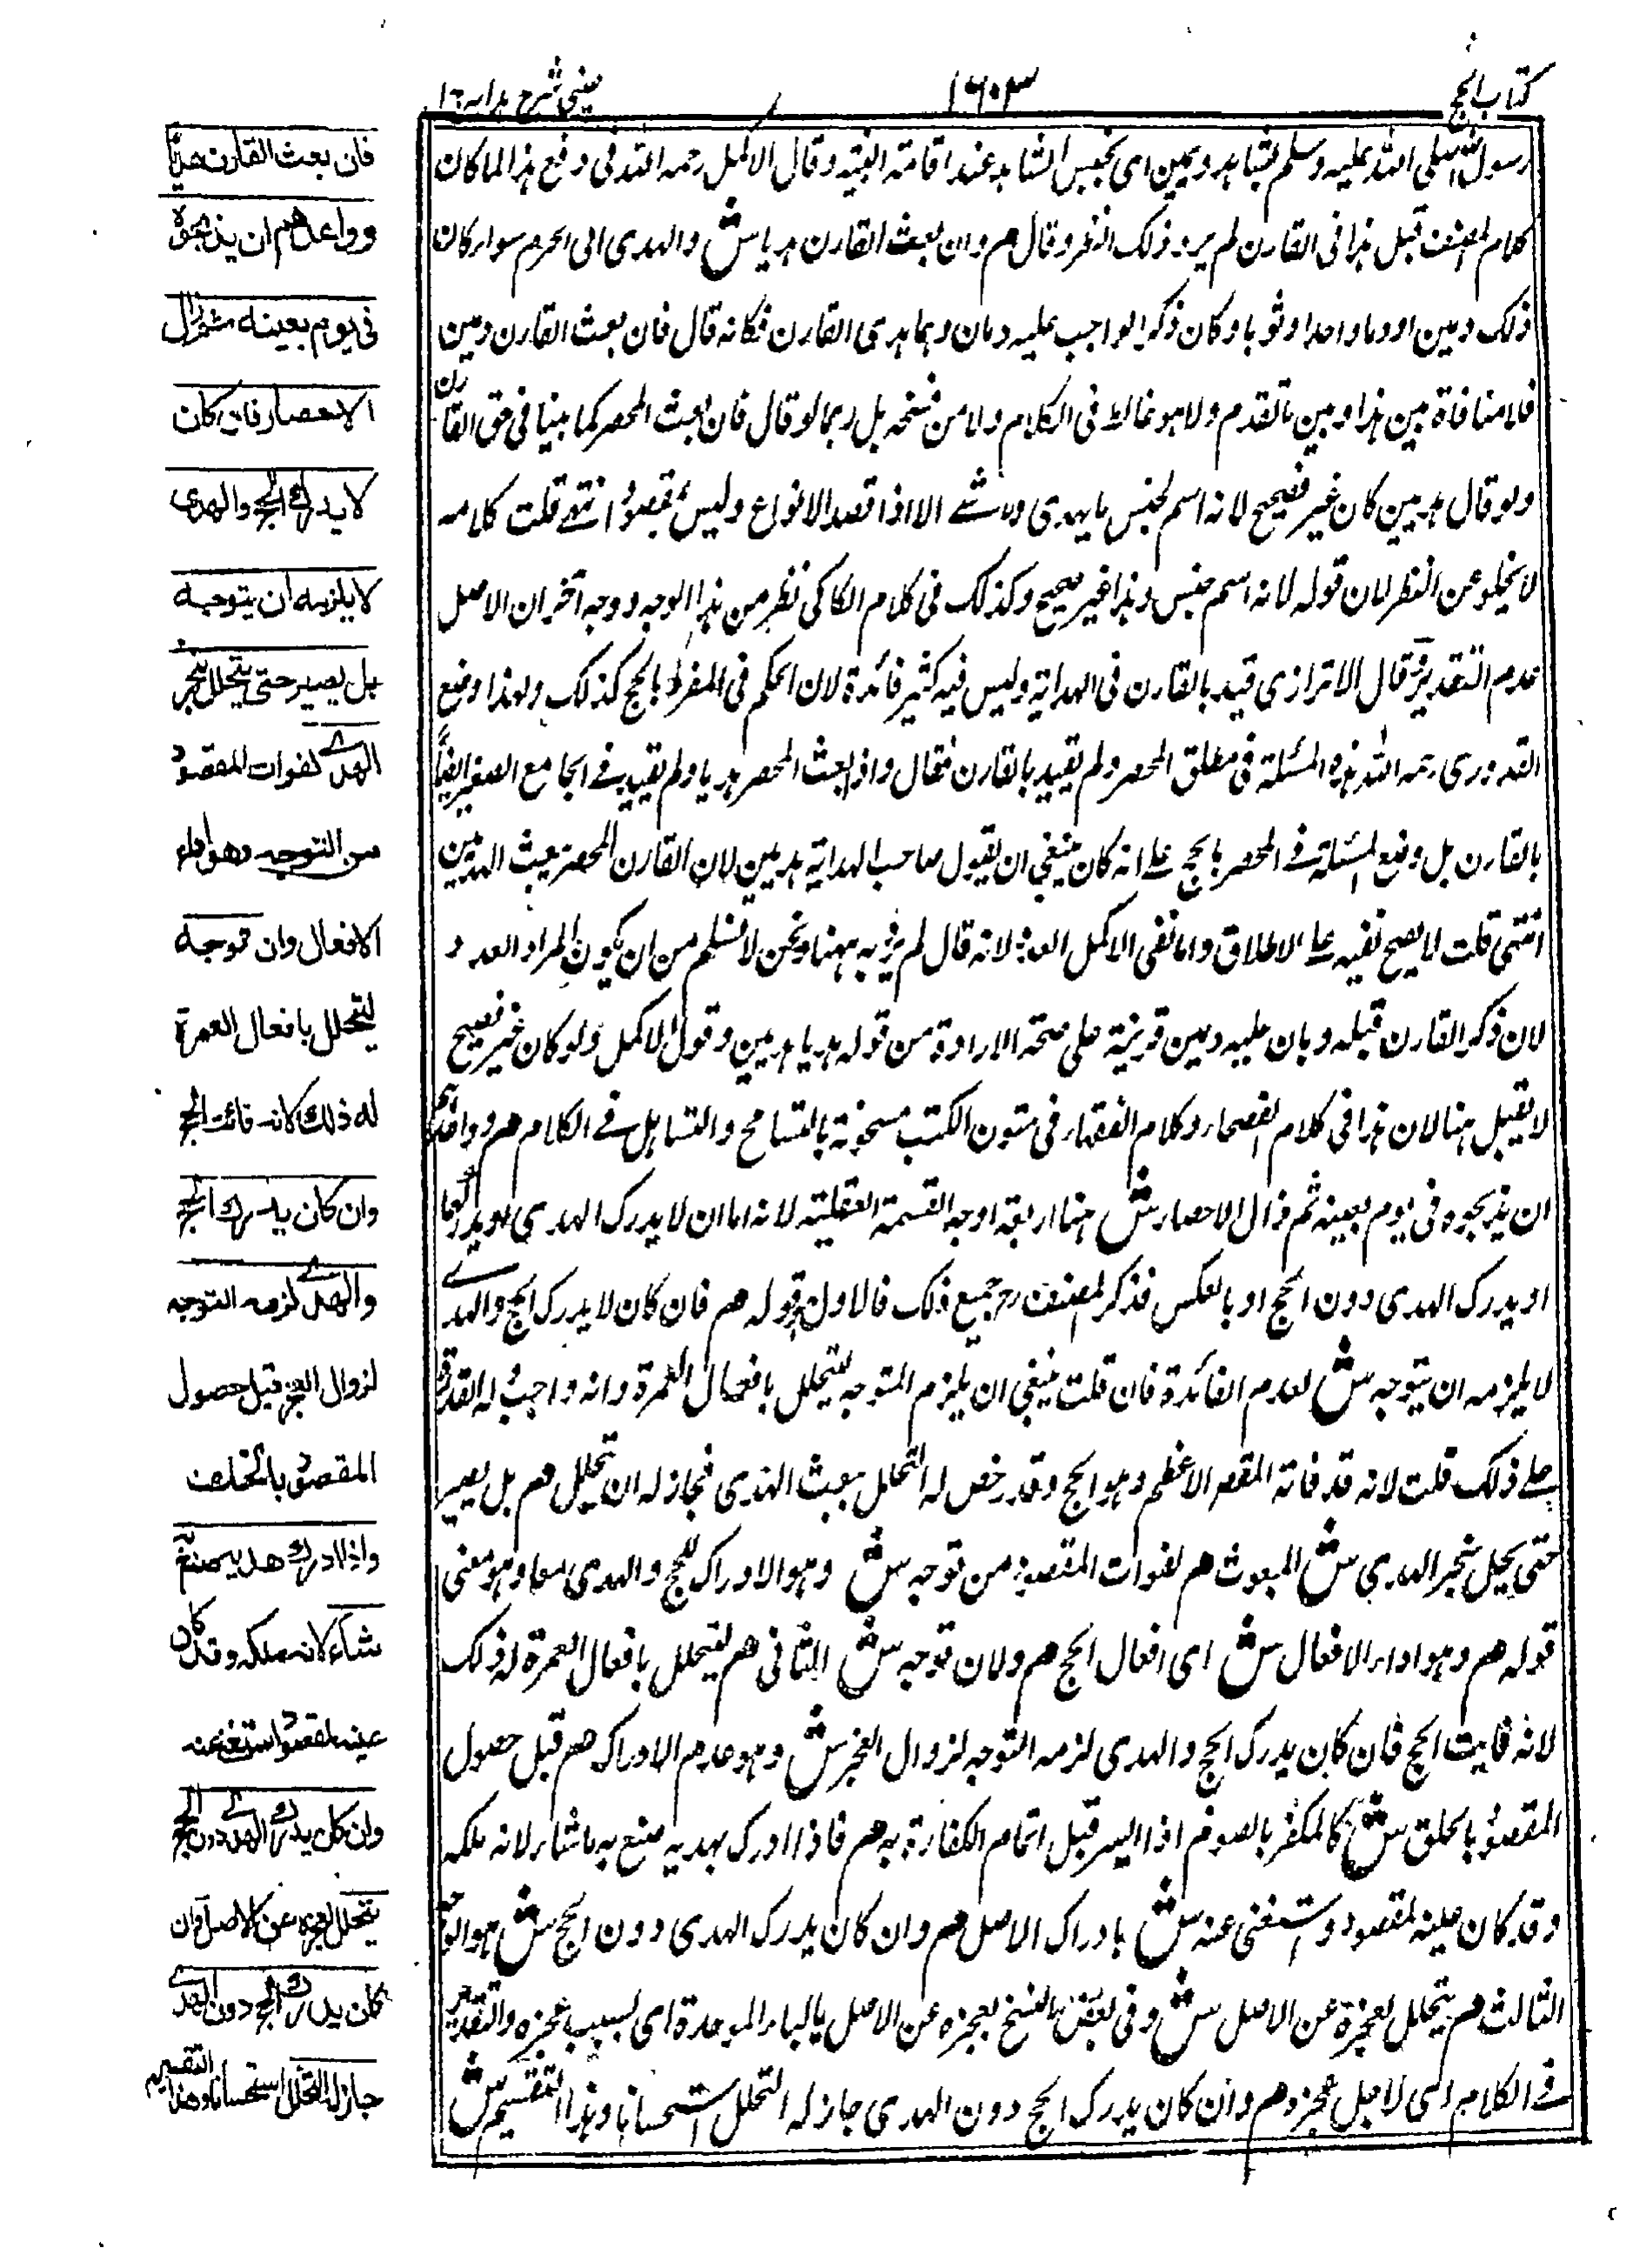 كتاب الحج
١٦٠٣
عينى شرح هداية ج ١
رسول الله صلى الله عليه وسلم بشاهد ويمين اى بجنس الشاهد عند اقامة البينة وقال الاكمل رحمه الله فى دفع هذا لما كان
كلام المصنف قبل هذا فى القارن لم يرد ذلك النظر وقال هم وان بعث القارن هديا ش والهدى الى الحرم سواء كان
ذلك دمين او دما واحدا وثوبا وكان ذكر الواجب عليه دمان وهما هدى القارن فكانه قال فان بعث القارن دمين
فلا منافاة بين هذا وبين ما تقدم ولا هو غالط فى الكلام ولا من نسخه بل ربما لو قال فان بعث المحصر كما بينا فى حق القارن
ولو قال هديين كان غير فصيح لانه اسم لجنس ما يهدى ولا شے الا اذا قصد الانواع وليس بمقصود انتهى قلت كلامه
لا يخلو عن النظر لان قوله لانه اسم جنس وهذا غير صحيح وكذلك فى كلام الكاكى نظر من هذا الوجه ووجه آخر ان الاصل
عدم التقدير قال الاترازى قيد بالقارن فى الهداية وليس فيه كثير فائدة لان الحكم فى المفرد بالحج كذلك ولهذا وضع
القدورى رحمه الله هذه المسئلة فى مطلق المحصر ولم يقيد بالقارن فقال واذا بعث المحصر هديا ولم يقيد فے الجامع الصغير ايضاً
بالقارن بل وضع المسئلة فے المحصر بالحج علے انه كان ينبغى ان يقول صاحب الهداية هديين لان القارن المحصر يبعث الهديين
انتهى قلت لا يصح نفيه علے الاطلاق واما نفى الاكمل العدد لانه قال لم يرد به ههنا ونحن لا نسلم من ان يكون المراد العدد
لان ذكر القارن قبله وبان عليه دمين قرينة على صحة الارادة من قوله هديا هديين وقول الاكمل ولو كان غير فصيح
لا يقبل هنا لان هذا فى كلام الفصحاء وكلام الفقهاء فى متون الكتب مشحونة بالتسامح والتساهل فے الكلام هم وواعدهم
ان يذبحوه فى يوم بعينه ثم زال الاحصار ش هنا اربعة اوجه القسمة العقلية لانه اما ان لا يدرك الهدى او يدركهما
او يدرك الهدى دون الحج او بالعكس فذكر المصنف رح جميع ذلك فالاول قوله هم فان كان لا يدرك الحج والهدے
لا يلزمه ان يتوجه ش لعدم الفائدة فان قلت ينبغى ان يلزم التوجه ليتحلل بافعال العمرة وانه واجب له القدرة
علے ذلك قلت لانه قد فاته المقصد الاعظم وهو الحج وقد رخص له التحلل ببعث الهدى فجاز له ان يتحلل هم بل يصير
حتى يحل بنحر الهدى ش المبعوث هم لفوات المقصود من توجه ش وهو الادراك للحج والهدى معا وهو معنى
قوله هم وهو اداء الافعال ش اى افعال الحج هم ولان توجه ش الثانى هم ليتحلل بافعال العمرة له ذلك
لانه فايت الحج فان كان يدرك الحج والهدى لزمه التوجه لزوال العجز ش وهو عدم الادراك هم قبل حصول
المقصود بالخلف ش كالمكفر بالصوم اذا ايسر قبل اتمام الكفارة به هم فاذا ادرك هديه صنع به ما شاء لانه ملكه
وقد كان عينه لمقصود واستغنى عنه ش بادراك الاصل هم وان كان يدرك الهدى دون الحج ش هو الوجه
الثالث هم يتحلل لعجزه عن الاصل ش وفى بعض النسخ بعجزه عن الاصل بالباء الموحدة اى بسبب عجزه والتقدير
فے الكلام اى لاجل عجزه هم وان كان يدرك الحج دون الهدى جاز له التحلل استحسانا وهذا التقسيم ش
فان بعث القارن هديًا
وواعدهم ان يذبحوه
فى يوم بعينه ثم زال
الاحصار فان كان
لا يدرك الحج والهدى
لا يلزمه ان يتوجه
بل يصير حتى يتحلل بنحر
الهدے لفوات المقصود
من التوجه وهو اداء
الافعال وان توجه
ليتحلل بافعال العمرة
له ذلك لانه فائت الحج
وان كان يدرك الحج
والهدے لزمه التوجه
لزوال العجز قبل حصول
المقصود بالخلف
واذا ادرك هديه صنع به
شاء لانه ملكه وقد كان
عينه لمقصود استغنى عنه
وان كان يدرك الهدے دون الحج
يتحلل لعجزه عن الاصل وان
كان يدرك الحج دون الهدے
جاز له التحلل استحسانا وهذا التقسيم